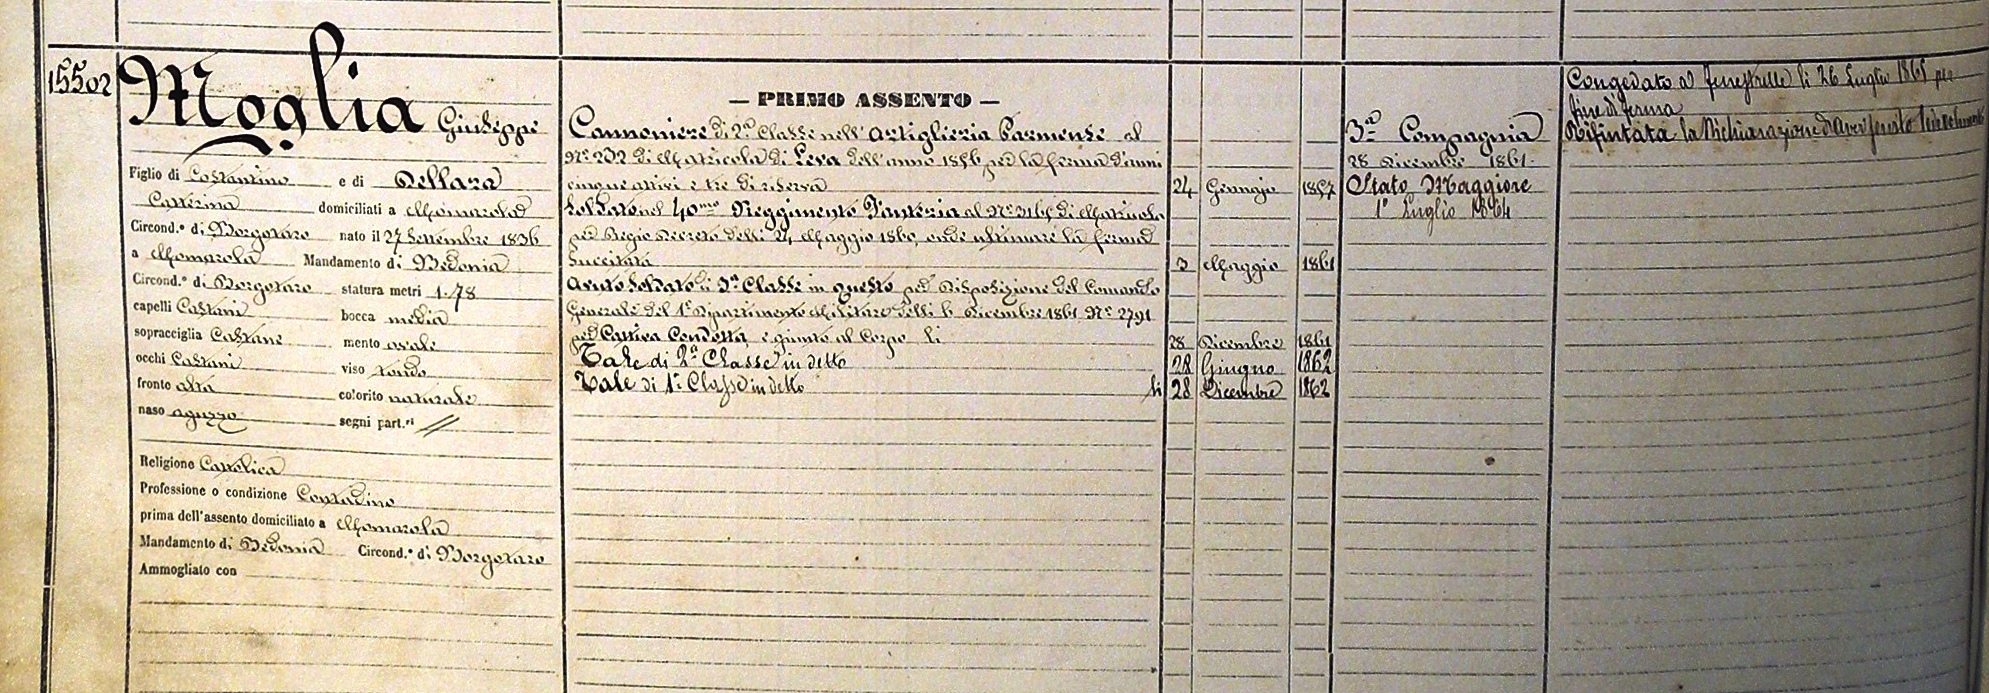 15502
Moglia Giuseppe
Figlio di Costantino e di Dellara
Catterina domiciliati a Chomarola
Circond.º di Borgotaro nato il 27 Settembre 1836
a Chomarola Mandamento di Bedonia
Circond.º di Borgotaro statura metri 1.78
capelli Castani bocca media
sopracciglia Castane mento ovale
occhi Castani viso tondo
fronte alta colorito naturale
naso aguzzo segni part.ri //
Religione Cattolica
Professione o condizione Contadino
prima dell'assento domiciliato a Chomarola
Mandamento di Bedonia Circond.º di Borgotaro
Ammogliato con
— PRIMO ASSENTO —
Cannoniere di 2ª Classe nell'Artiglieria Parmense al
Nº 232 di Matricola di Leva dell'anno 1856 per la ferma d'anni
cinque attivi e tre di riserva 24 Gennajo 1857
Soldato nel 40mo Reggimento Fanteria al Nº di Matricola
per Regio Decreto delli 24 Maggio 1860, onde ultimare la ferma
succitata 3 Maggio 1861
Avuto Soldato di 3ª Classe in questo per Disposizione del Comando
Generale del 1º Dipartimento Militare delli 6 Dicembre 1861 Nº 2791
per Cattiva Condotta, e giunto al Corpo li 28 Dicembre 1861
Tale di 2ª Classe in detto 28 Giugno 1862
Tale di 1ª Classe in detto li 28 Dicembre 1862
3ª Compagnia
28 Dicembre 1861
Stato Maggiore
1º Luglio 1864
Congedato a Fenestrelle li 26 Luglio 1865 per
fine di ferma
Rifiutata la Dichiarazione d'aver tenuto